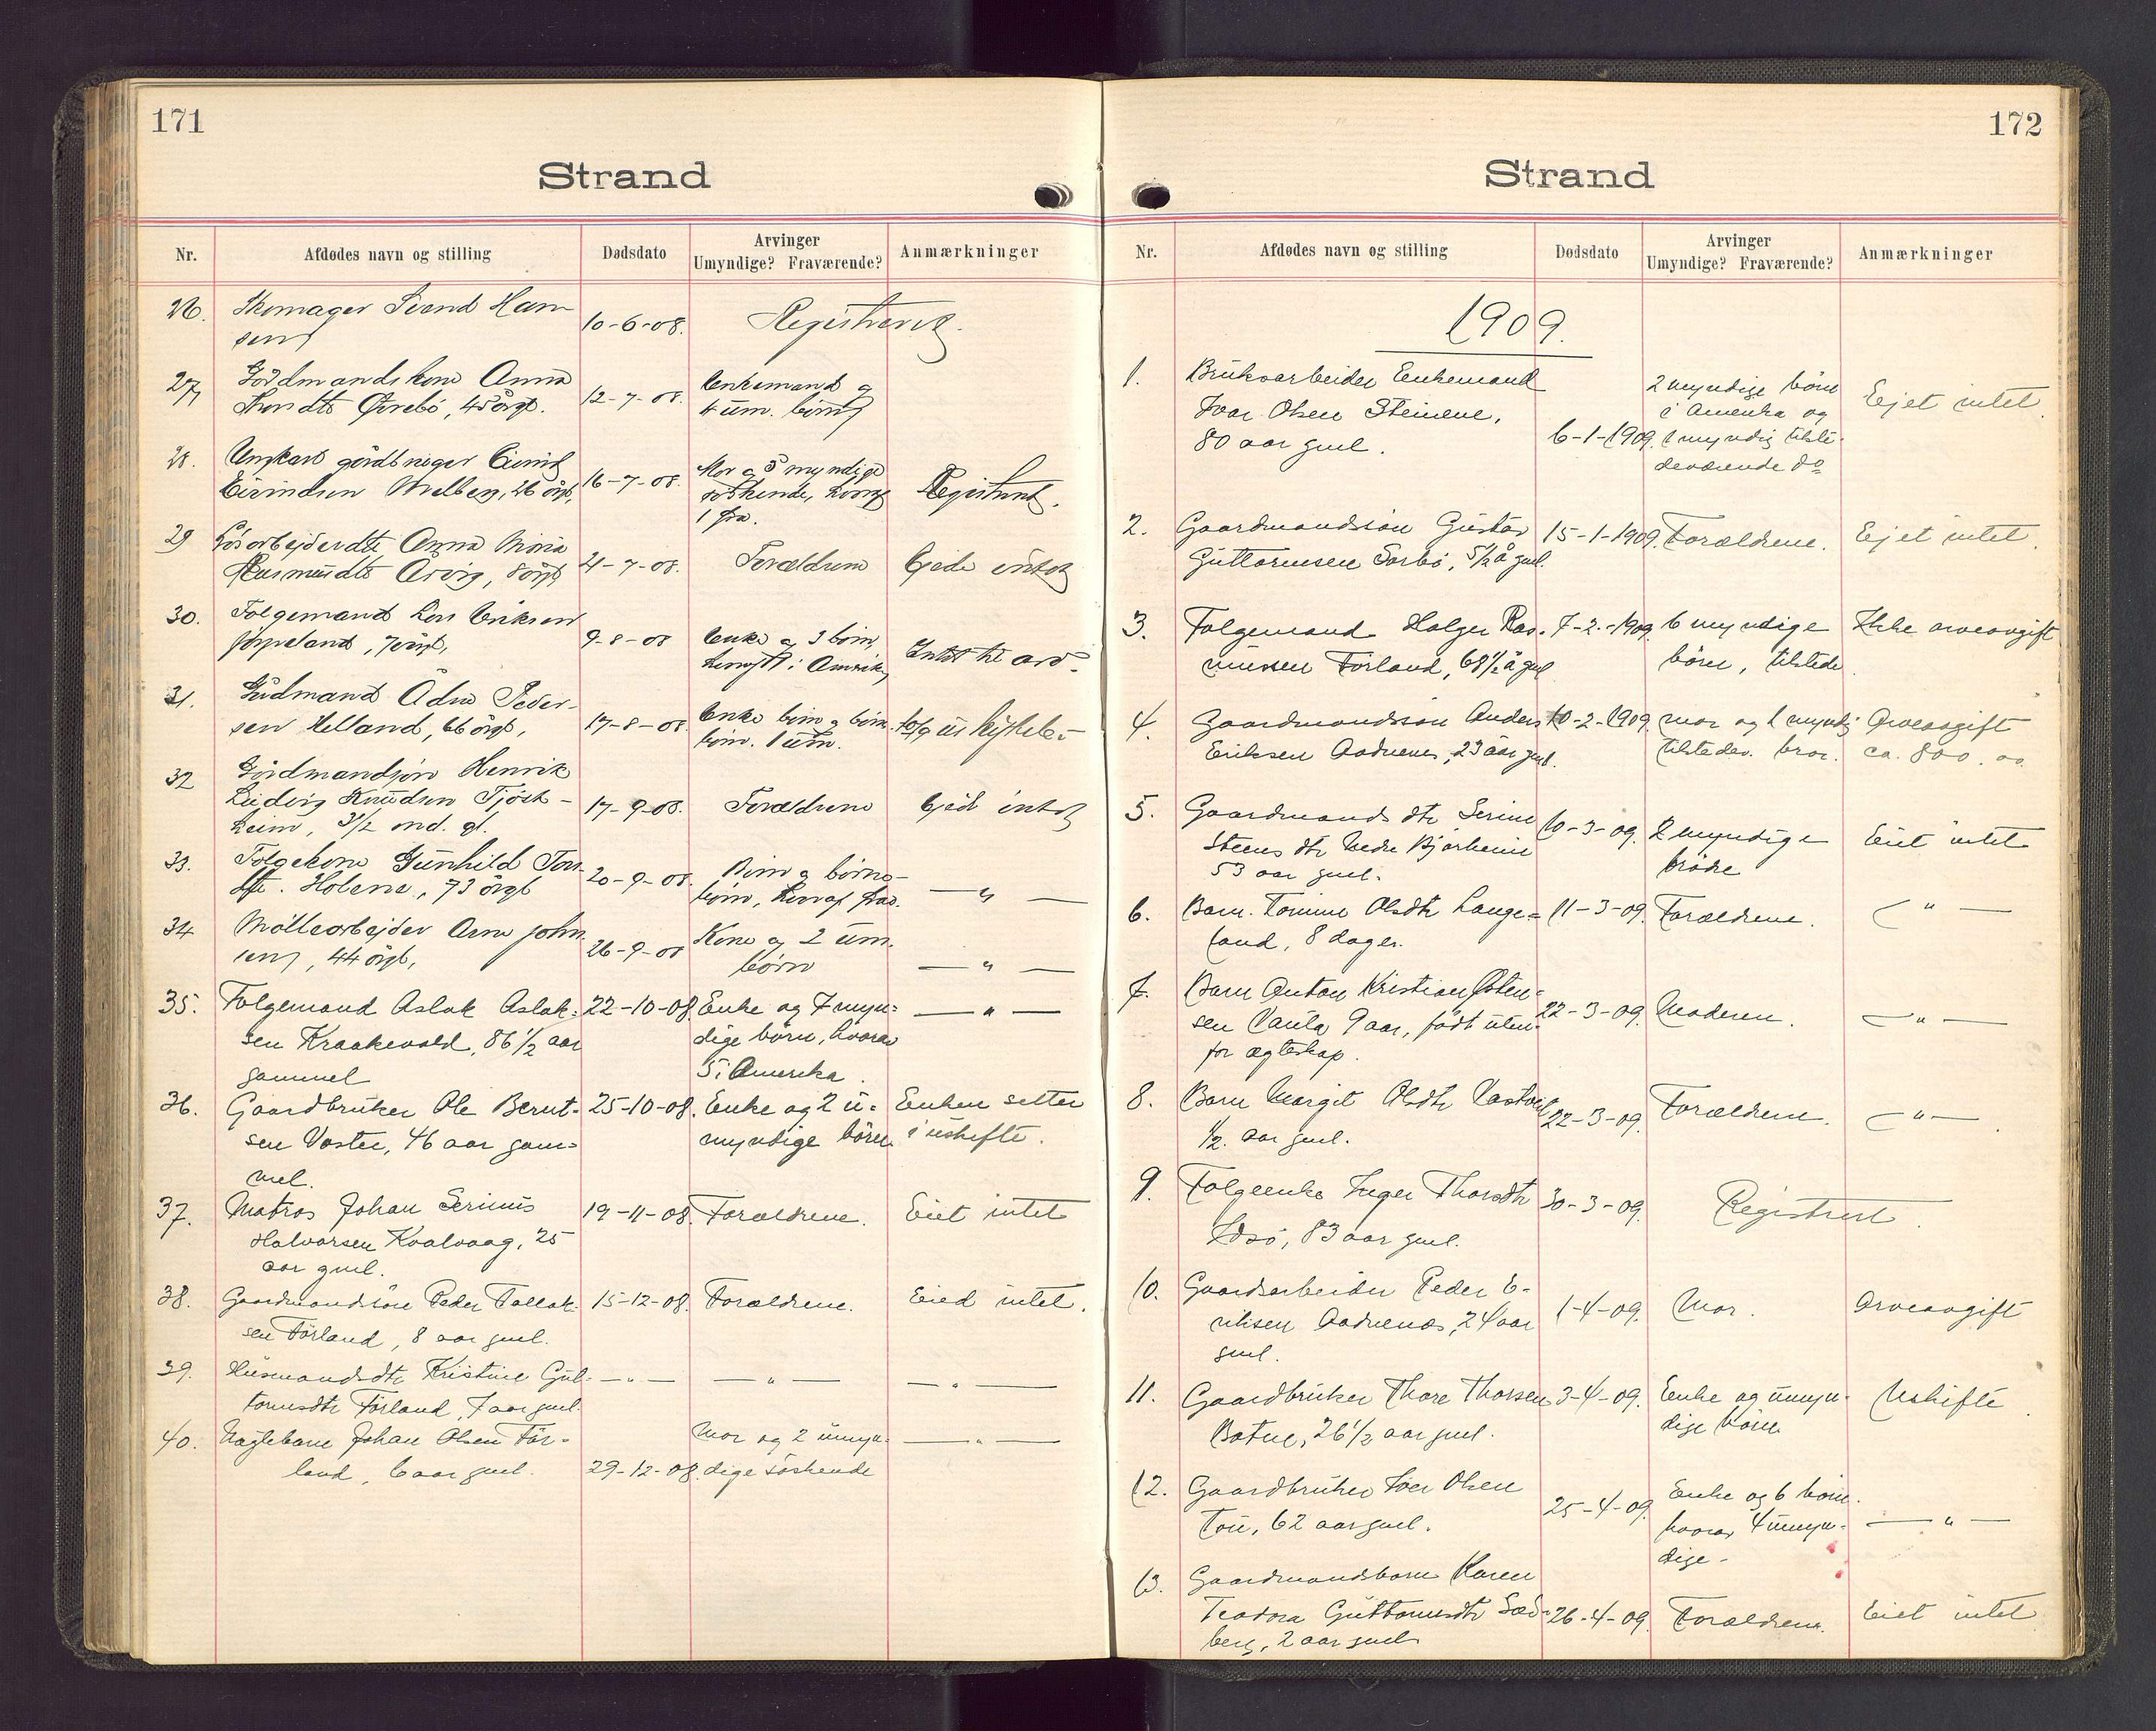 171
Strand
Nr.
Afdødes navn og stilling
Dødsdato
Arvinger
Umyndige? Fraværende?
Anmærkninger
26. Skomager Svend Han-
sen 10-6-08. Registreret.
27 Gårdmandskone Anna
12-7-08. Enkemand og
4 um. børn
28. Ungkarl gårdbruger Eivind
Eivindsen 26 årgl, 16-7-08. Mor og 5 myndige
søskende, hvoraf
1 fra. Registreret.
29 Løsarbejderdtr Anna Maria
Rasmusdtr 8 årgl 21-7-08. Forældrene Ejede intet
30. Folgemand Lars Eriksen
Jørpeland, årgl, 9-8-08 Enke og børn,
i Amerika Intet til arv.
31. Gårdmand Peder-
sen Helland, 66 årgl, 17-8-08. Enke børn og børne-
børn. 1 um.
32 Gårdmandsøn Henrik
Ludvig Knudsen Tjøst-
heim, 3 1/2 md. gl. 17-9-08. Forældrene Ejed intet
33. Folgekone Gunhild
dtr. Holene, 73 årgl 20-9-08. Børn og børne-
børn, hvoraf frav. — " —
34 Møllearbejder Arne John-
sen, 44 årgl, 26-9-08 Kone og 2 um.
børn — " —
35. Folgemand Aslak Aslak- 22-10-08. Enke og 7 myn- — " —
sen Kraakevold, 86 1/2 aar dige børn, hvorav
gammel 5 i Amerika.
36. Gaardbruker Ole Bernt- 25-10-08. Enke og 2 u- Enken sitter
sen Voster, 46 aar gam- myndige børn i uskifte.
mel.
37. Matros Johan Serinius 19-11-08. Forældrene. Eiet intet
Halvorsen Kvalvaag, 25
aar gml.
38. Gaardmandssøn Peder Tollak- 15-12-08. Forældrene. Eied intet.
sen Førland, 8 aar gml.
39. Husmandsdtr Kristine Gut- — " — — " — — " —
tormsdtr Førland, 7 aar gml.
40. Johan Olsen Før- Mor og 2 umyn- — " —
land, 6 aar gml. 29-12-08. dige søskende
172
Strand
Nr.
Afdødes navn og stilling
Dødsdato
Arvinger
Umyndige? Fraværende?
Anmærkninger
1909.
1. Brukvarbeider Enkemand 2 myndige børn
Ivar Olsen Steinene, i Amerika og Ejet intet.
80 aar gml. 6-1-1909. 1 myndig tilste-
deværende do
2. Gaardmandssøn Gustav 15-1-1909. Forældrene. Ejet intet.
Guttormsen Sørbø, 5 1/2 å gml.
3. Folgemand Holger Ras- 7-2-1909. 6 myndige Ikke arveavgift
mussen Førland, 68 1/2 å gml børn, tilstede.
4. Gaardmandssøn Anders 10-2-1909. mor og 1 myndig Arveavgift
Eriksen Aadnenes, 23 aar gml. tilstedev. bror. ca. 800.00
5. Gaardmandsdtr Serine 10-3-09. 2 myndige Eiet intet
Steensdtr Nedre Bjørheim brødre
53 aar gml.
6. Barn Tomine Olsdtr Lange- 11-3-09. Forældrene. — " —
land, 8 dager.
7. Barn Anton Kristian Østen-
sen Vaula 9 aar, født uten- 22-3-09. Moderen. — " —
for ægteskap.
8. Barn Margit Olsdtr Vastveit Forældrene. — " —
1/2 aar gml. 22-3-09.
9. Folgeenke Inger Thorsdtr 30-3-09. Registrert.
Idsø, 83 aar gml.
10. Gaardsarbeider Peder E-
riksen Aadnenes, 24 aar 1-4-09. Mor. Arveavgift
gml.
11. Gaardbruker Thore Thorsen 3-4-09. Enke og umyn- Uskifte
Botne, 26 1/2 aar gml. dige børn
12. Gaardbruker Iver Olsen Enke og 6 børn.
Tou, 62 aar gml. 25-4-09. hvorav 4 umyn- — " —
dige.
13. Gaardmandsbarn Karen
Teodora Guttormsdtr Sed- 26-4-09. Forældrene. Eiet intet
berg, 2 aar gml.